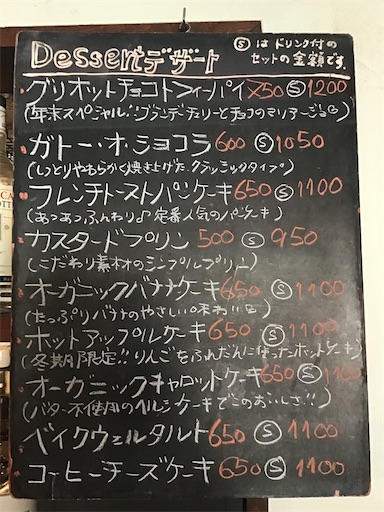 Dessertデザート
Ⓢは ドリンク付の
セットの金額です。
グリオットチョコトフィーパイ 750 Ⓢ 1200
(年末スペシャル!ブランデーチェリーとチョコのマリアージュ
ガトー・オ・ショコラ 600 Ⓢ 1050
(しっとりやわらかく焼き上げた クラッシックタイプ)
フレンチトーストパンケーキ 650 Ⓢ 1100
(あつあつふんわり♪ 定番人気のパンケーキ)
カスタードプリン 500 Ⓢ 950
(こだわり素材のシンプルプリン)
オーガニックバナナケーキ 650 Ⓢ 1100
(たっぷりバナナのやさしい味わい
ホットアップルケーキ 650 Ⓢ 1100
(冬期限定!!りんごをふんだんに使ったホットケーキ)
オーガニックキャロットケーキ 650 Ⓢ 1100
(バター不使用のヘルシーケーキでこのおいしさ!!)
ベイクウェルタルト 650 Ⓢ 1100
コーヒーチーズケーキ 650 Ⓢ 1100